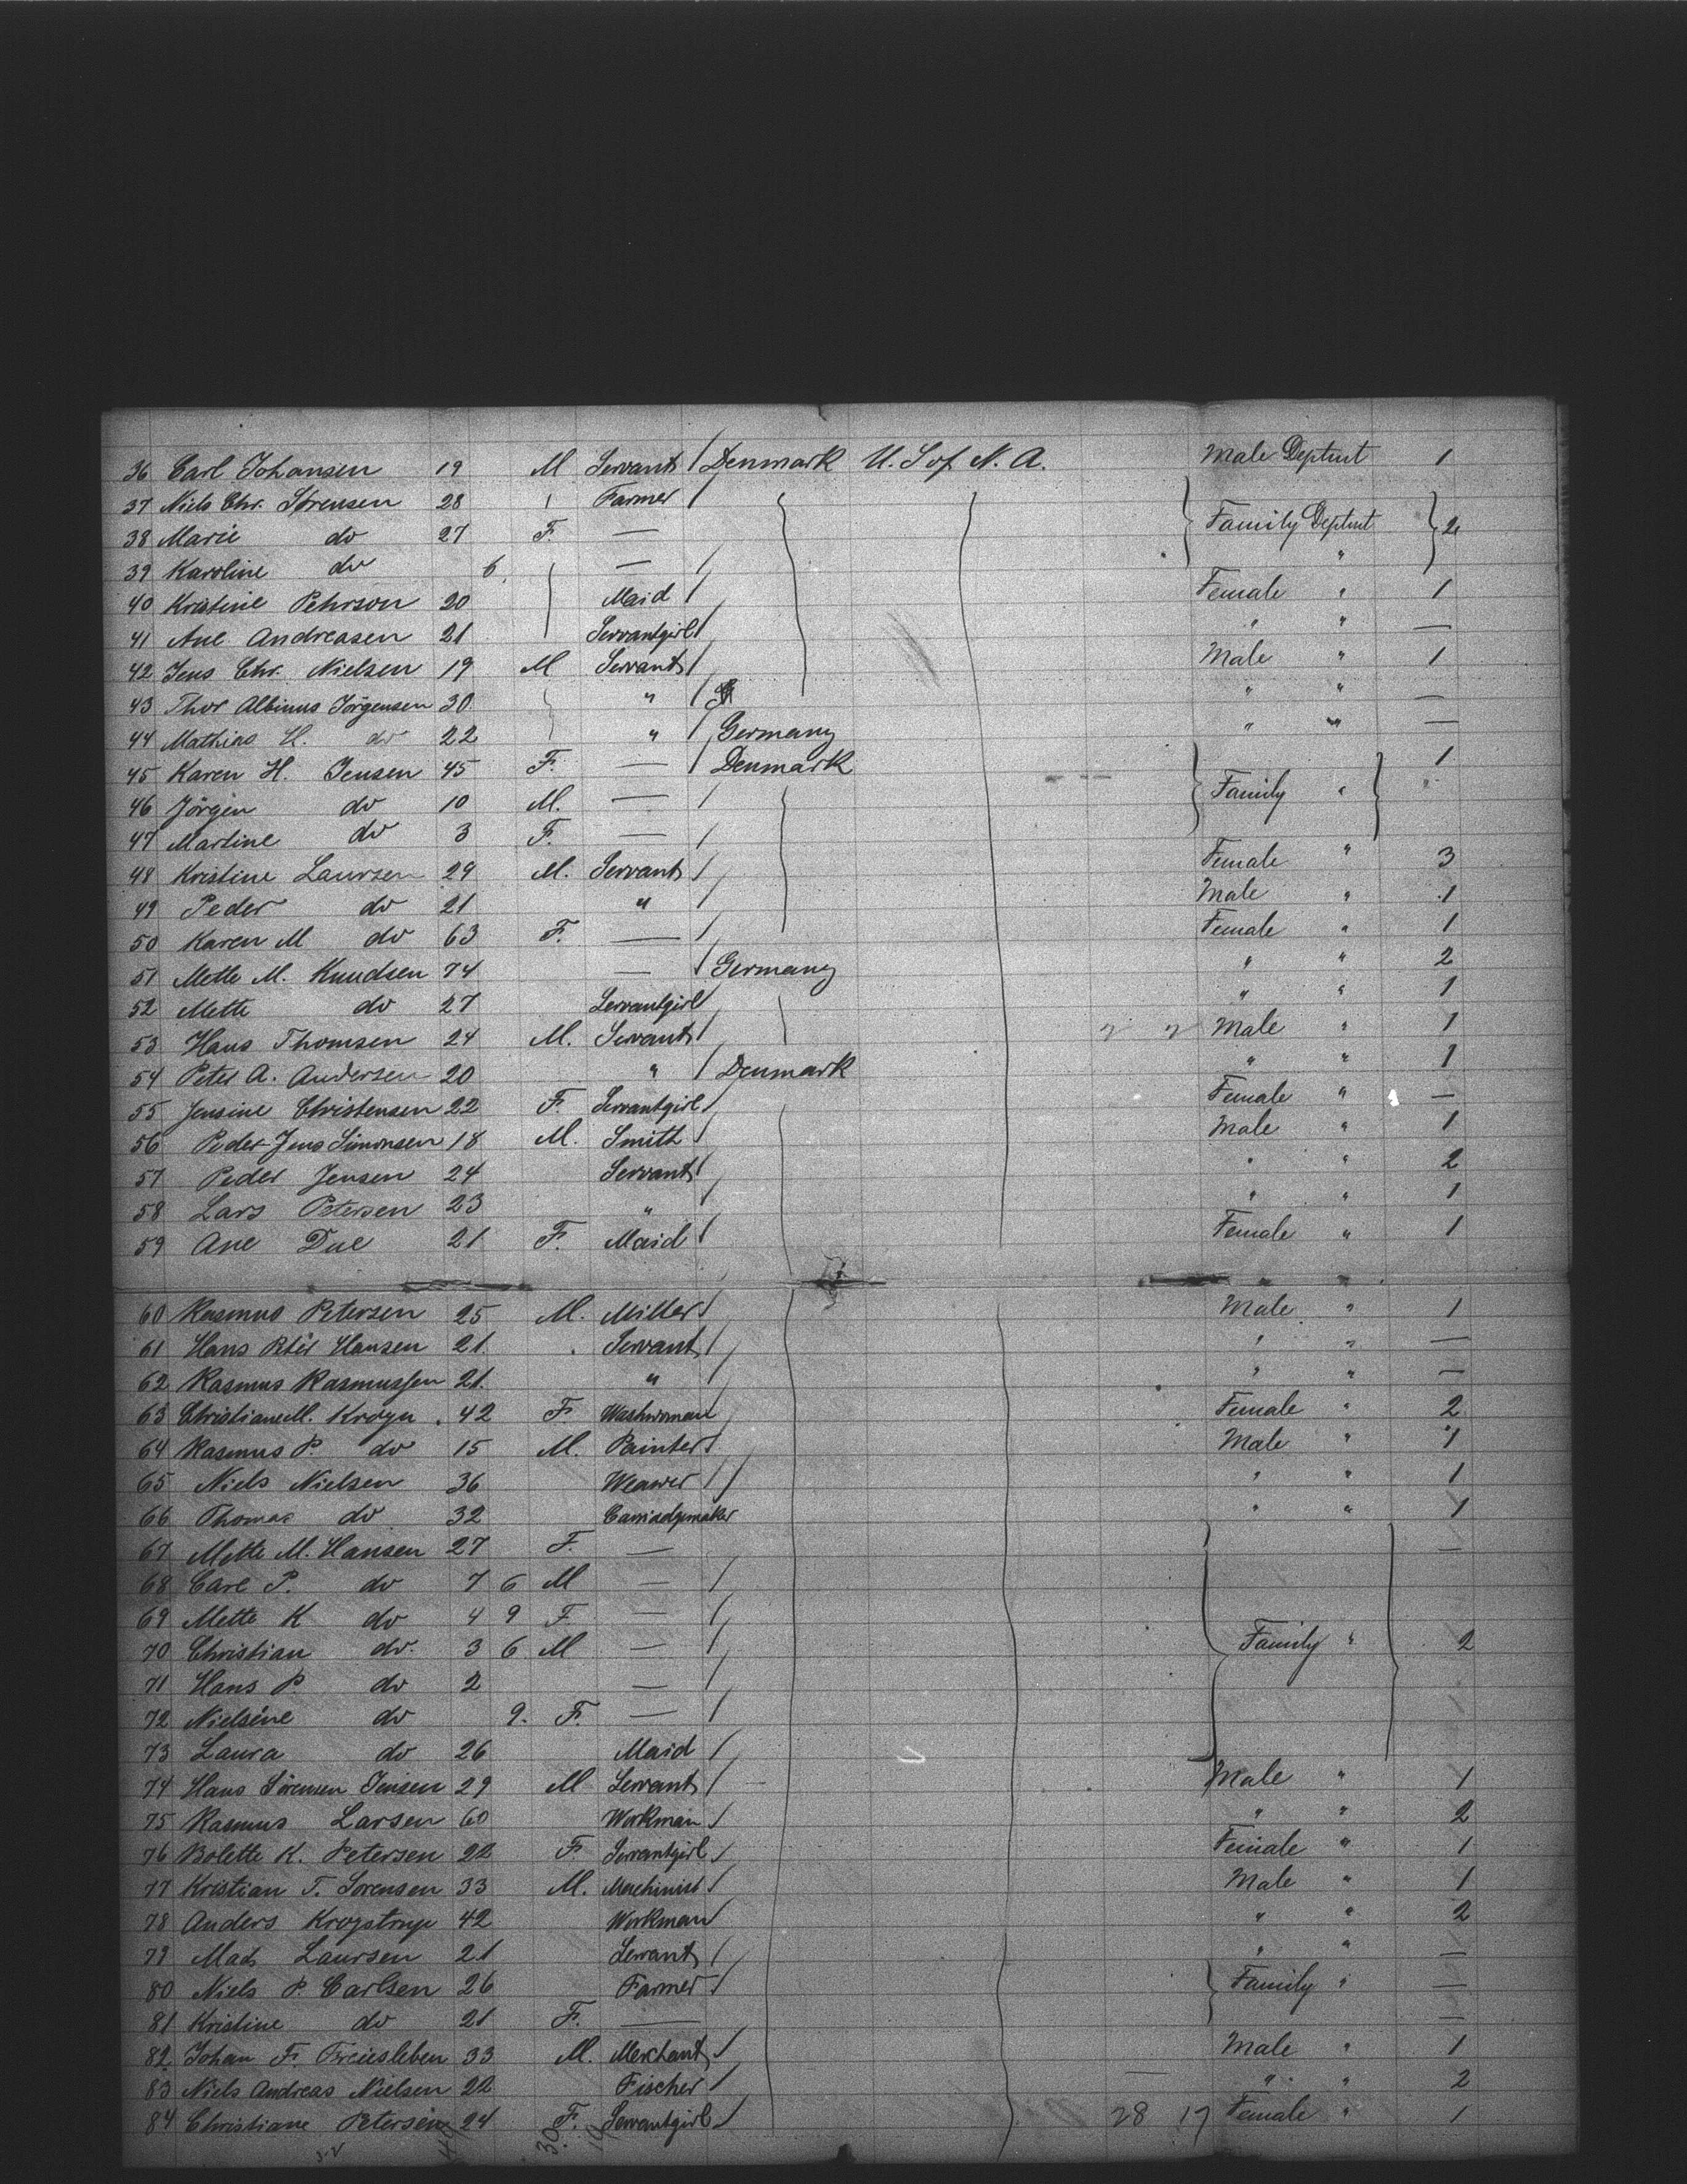 36 Carl Johansen 19 M Servant / Denmark U. S of N. A. Male Deptmt 1
37 Niels Chr. Sörensen 28 Farmer /
38 Marie do 27 F. — Family Deptmt 2
39 Karoline do 6 — / "
40 Kristine Pehrson 20 Maid / Female " 1
41 Ane Andreasen 21 Servantgirl / " " —
42 Jens Chr. Nielsen 19 M Servant / Male " 1
43 Thor Albinus Jörgensen 30 " / " " —
44 Mathias H. do 22 " / Germany " " —
45 Karen H. Jensen 45 F. — / Denmark 1
46 Jörgen do 10 M. — / Family "
47 Martine do 3 F. — /
48 Kristine Laursen 29 M. Servant / Female " 3
49 Peder do 21 " / Male " 1
50 Karen M do 63 F. — / Female " 1
51 Mette M. Knudsen 74 — / Germany " " 2
52 Mette do 27 Servantgirl / " " 1
53 Hans Thomsen 24 M. Servant / Male " 1
54 Peter A. Andersen 20 " / Denmark " " 1
55 Jensine Christensen 22 F. Servantgirl / Female " —
56 Peder Jens Simonsen 18 M. Smith / Male " 1
57 Peder Jensen 24 Servant / " " 2
58 Lars Petersen 23 " / " " 1
59 Ane Due 21 F. Maid / Female " 1
60 Rasmus Petersen 25 M. Miller / Male " 1
61 Hans Peter Hansen 21 Servant / " " —
62 Rasmus Rasmussen 21. " / " " —
63 Christiane M. Kröyn 42 F Washwoman Female " 2
64 Rasmus P. do 15 M. Painter / Male " 1
65 Niels Nielsen 36 Weawer / " " 1
66 Thomas do 32 " " 1
67 Mette M. Hansen 27 F. — —
68 Carl P. do 7 6 M — /
69 Mette K do 4 9 F — /
70 Christian do. 3 6 M — / Family " 2
71 Hans P. do 2 — /
72 Nielsine do 9. F. — /
73 Laura do 26 Maid /
74 Hans Sörensen Jensen 29 M Servant / Male " 1
75 Rasmus Larsen 60 Workman / " " 2
76 Bolette K. Petersen 22 F Servantgirl / Female " 1
77 Kristian T. Sorensen 33 M. Maschinist / Male " 1
78 Anders Krogstrup 42 Workman " " 2
79 Mads Laursen 21 Servant / " " —
80 Niels P. Carlsen 26 Farmer / Family " —
81 Kristine do 21 F. — —
82 Johan F. Freiesleben 33 M. Merchant / Male " 1
83 Niels Andreas Nielsen 22 Fischer / " " 2
84 Christiane Petersen 24 F. Servantgirl / 28 17 Female " 1